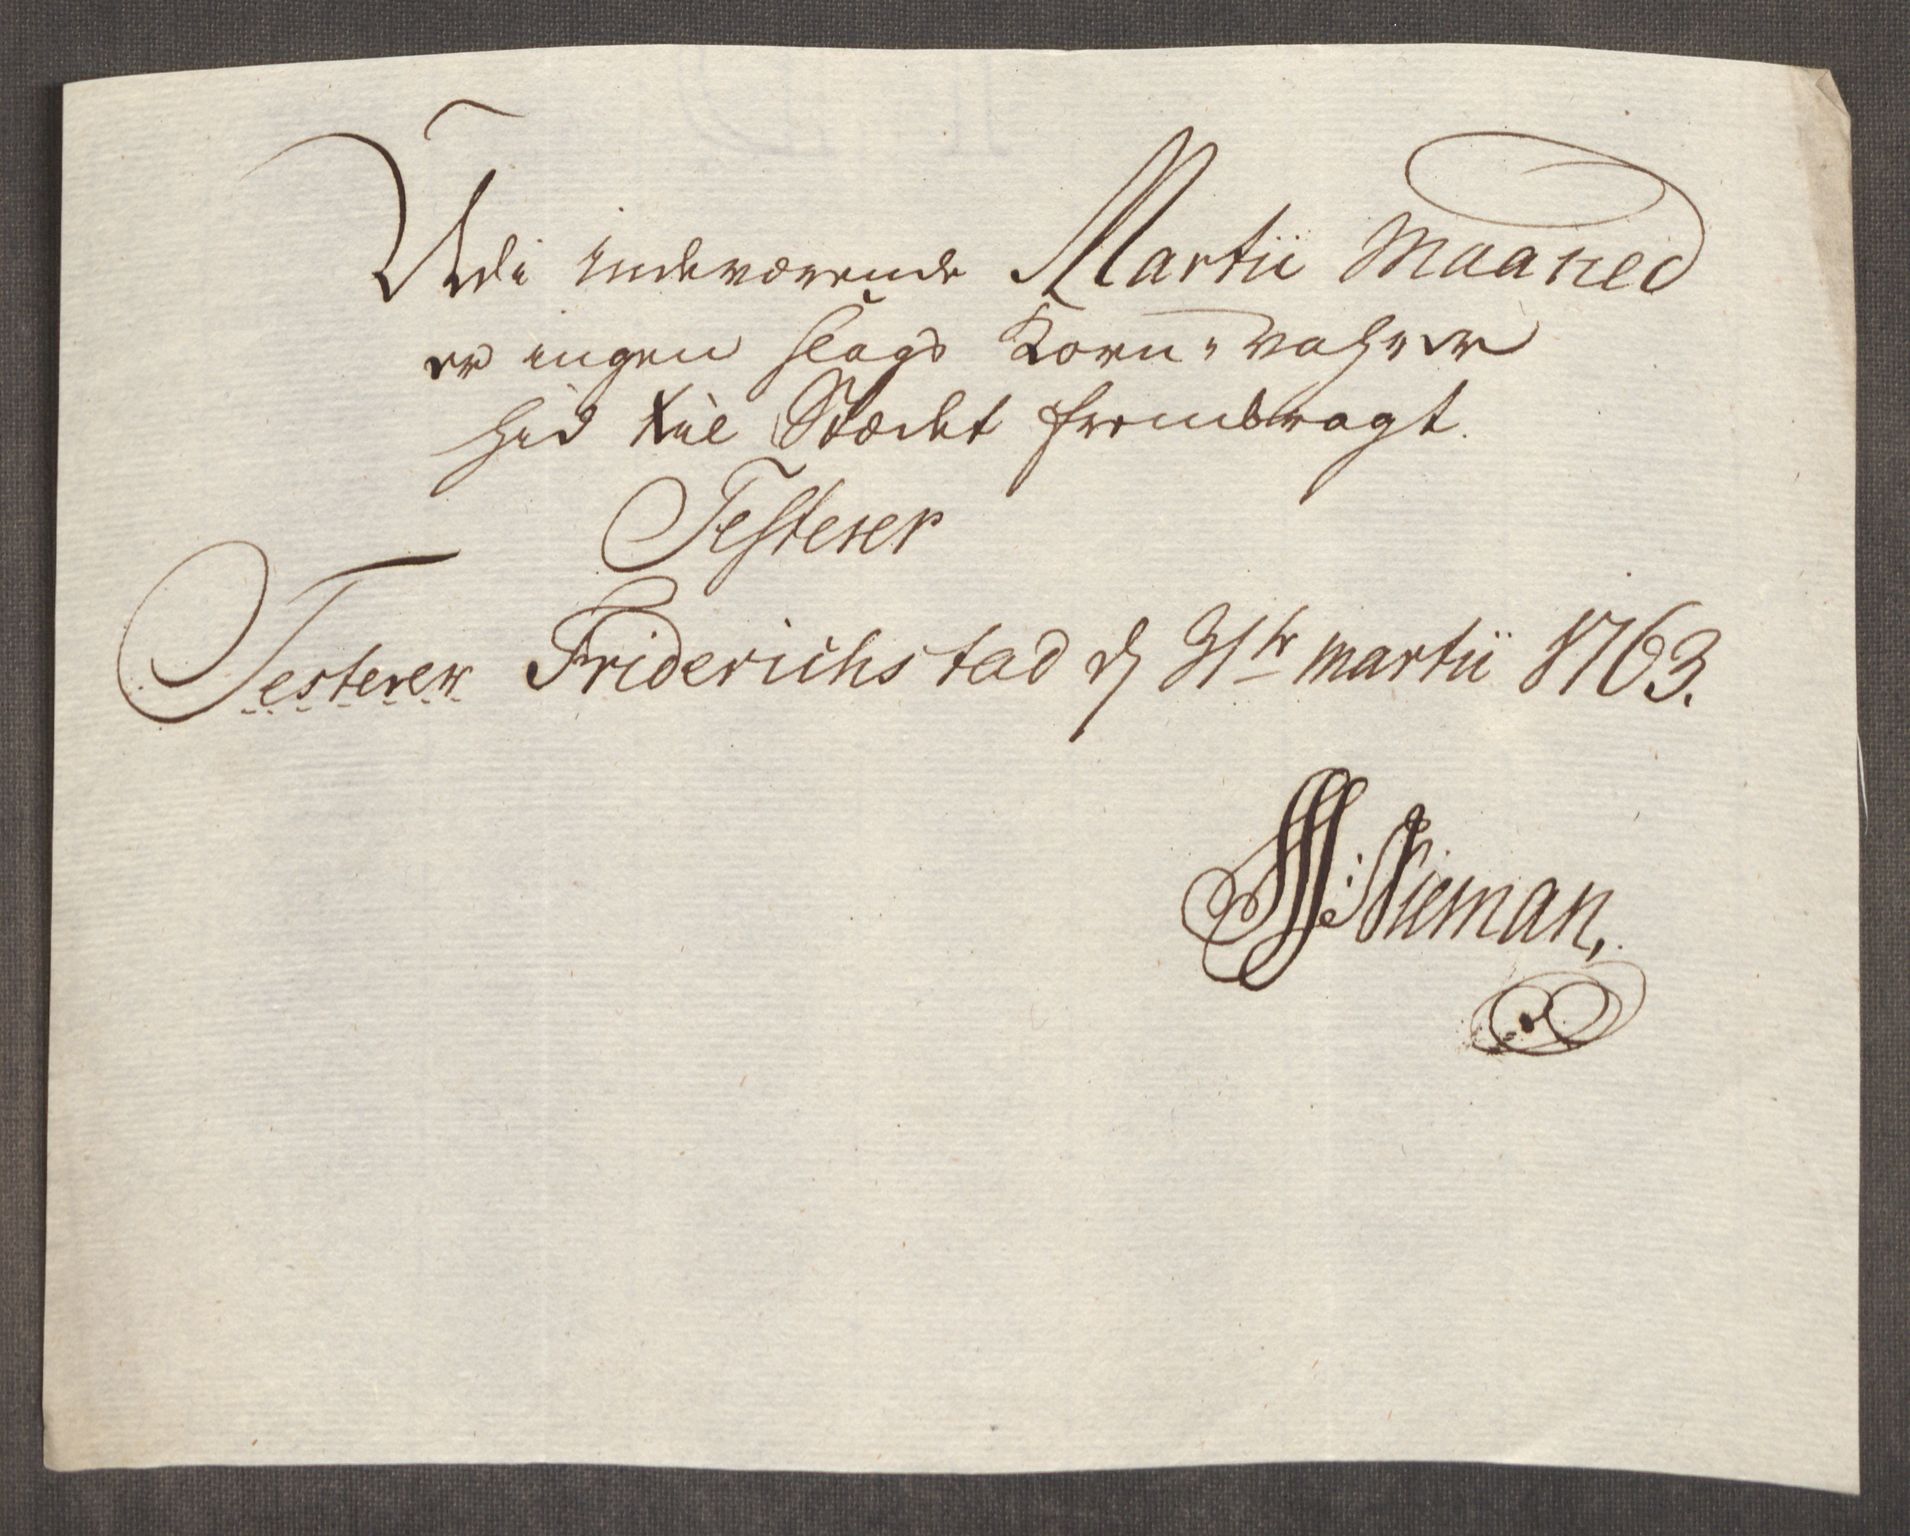 Udi indeværende Martii Maaned
er ingen slags Korn-vahrer
hid til Stædet frembragt.
Testerer
Testerer Friderichstad d 31te martii 1763.
Nieman,